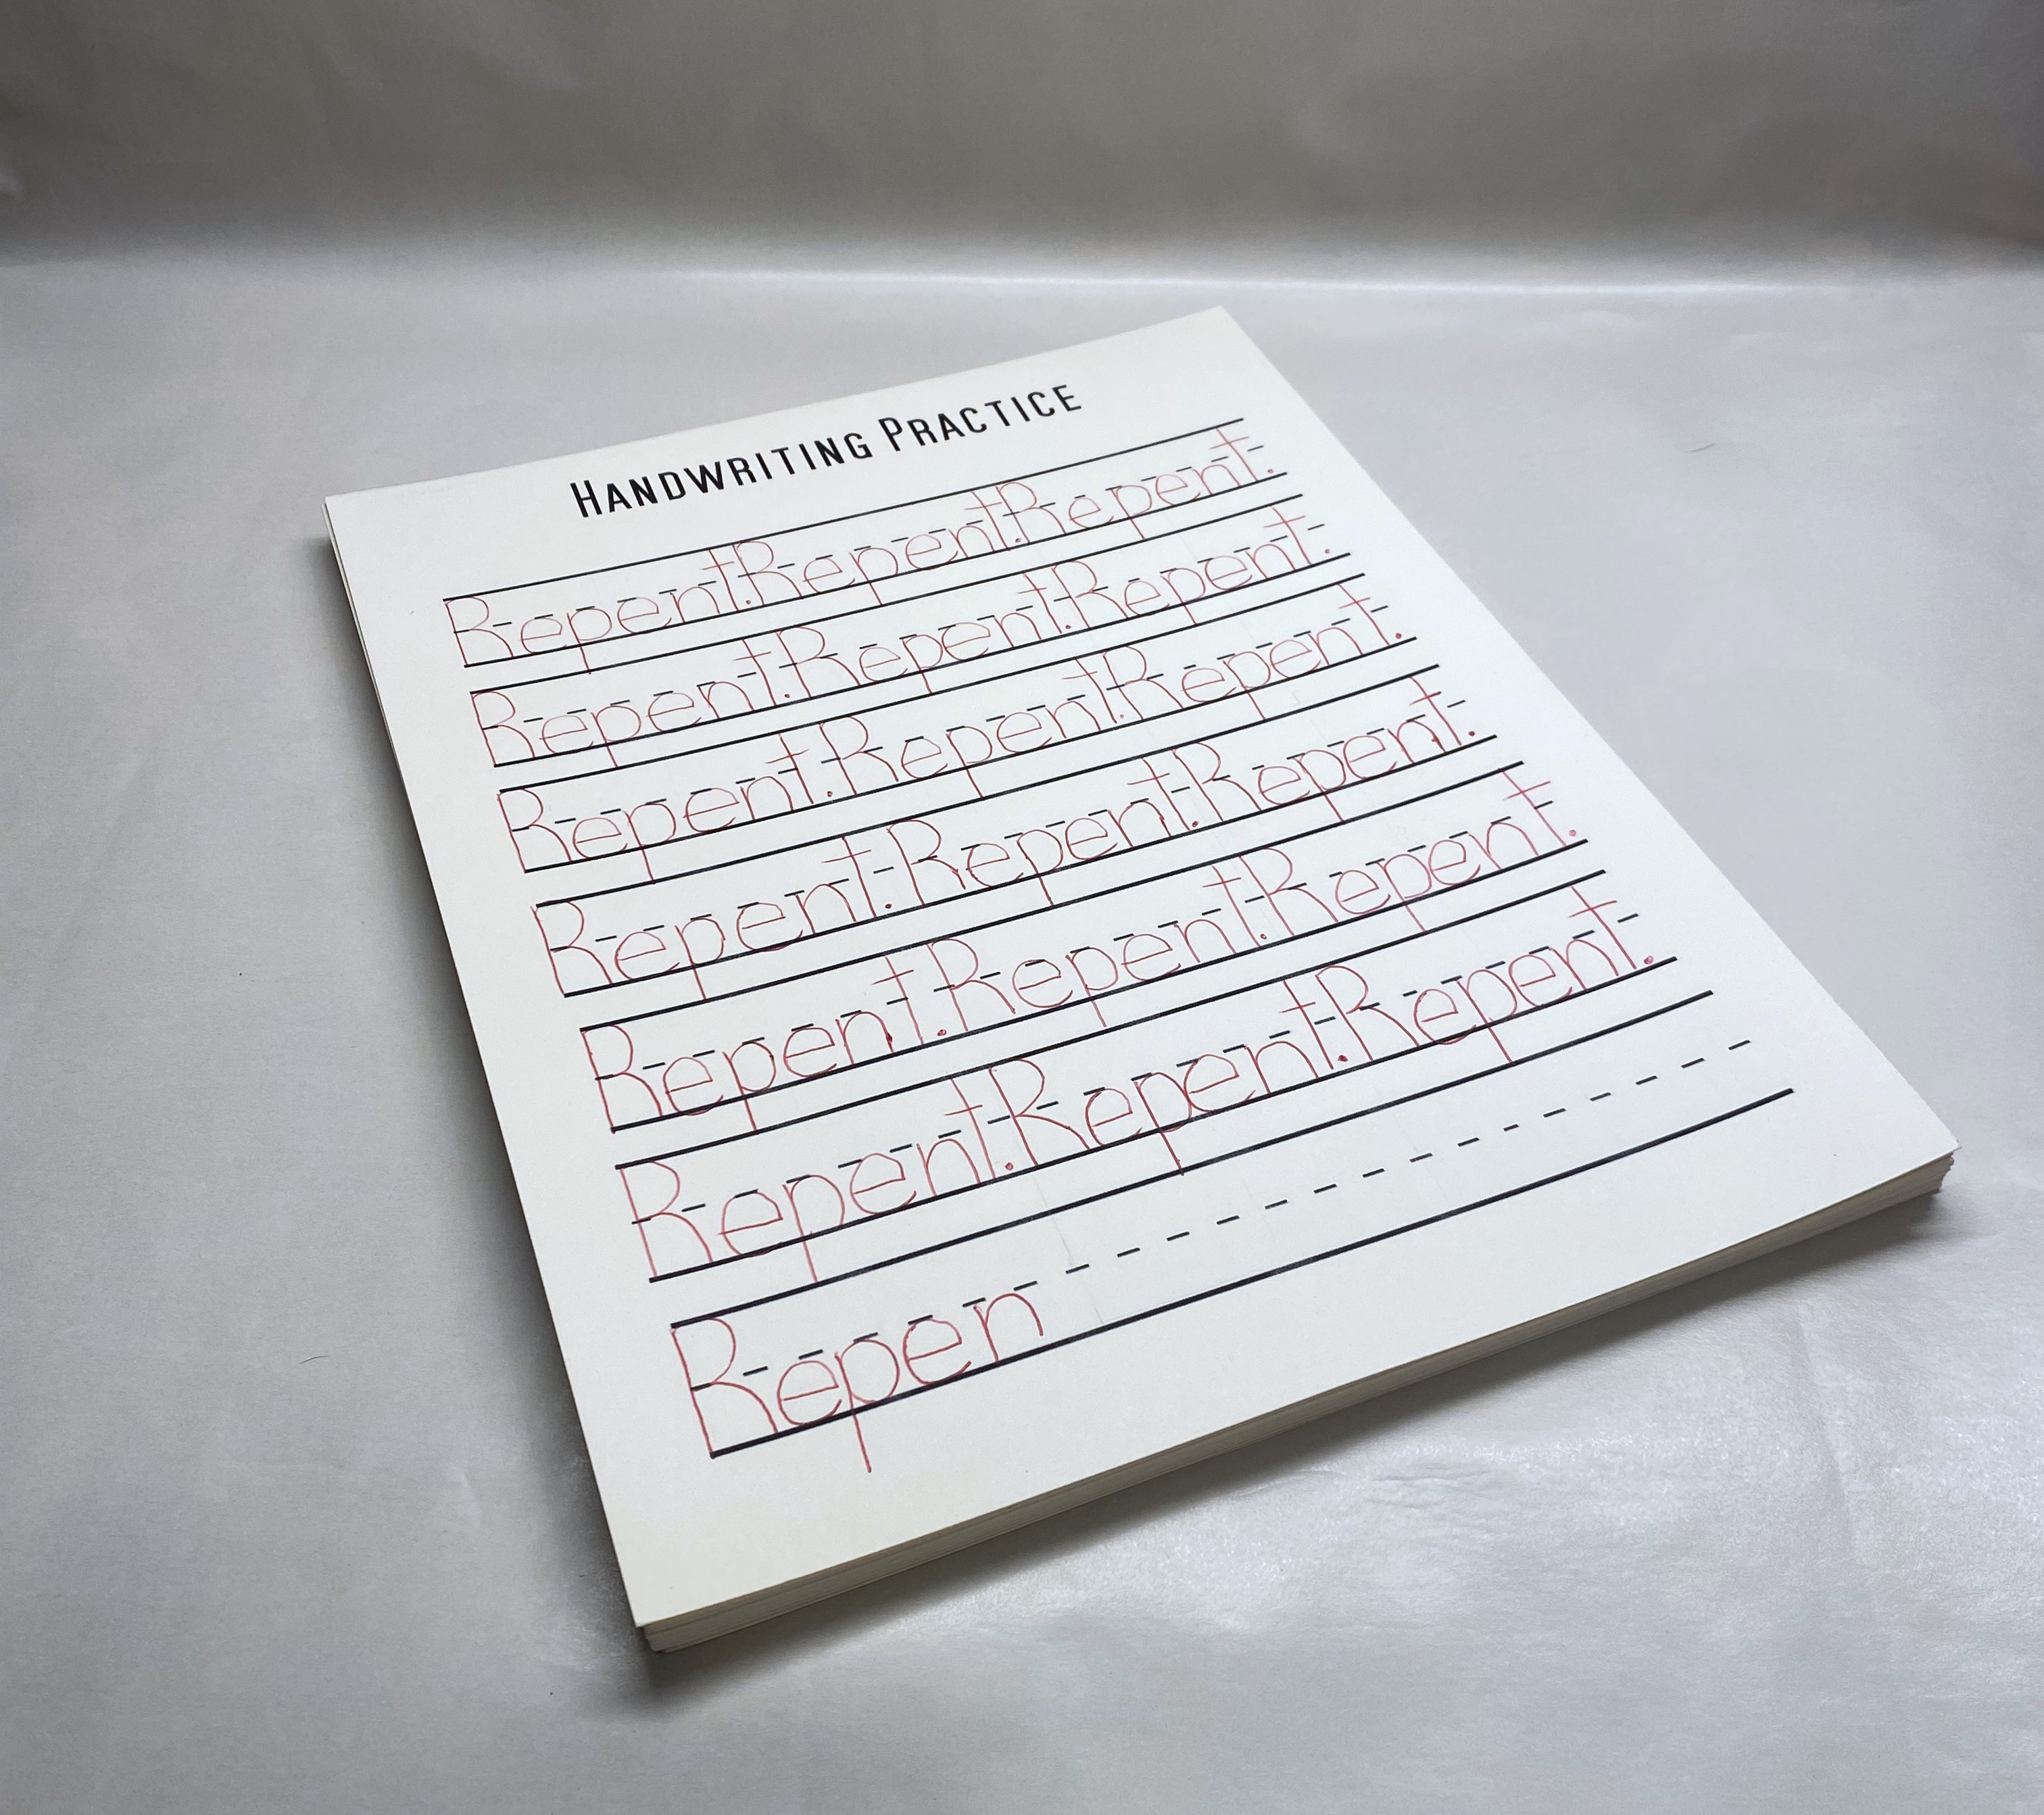 HANDWRITING PRACTICE
Repent. Repent. Repent.
Repent. Repent. Repent.
Repent. Repent. Repent.
Repent. Repent. Repent.
Repent. Repent. Repent.
Repent. Repent. Repent.
Repen